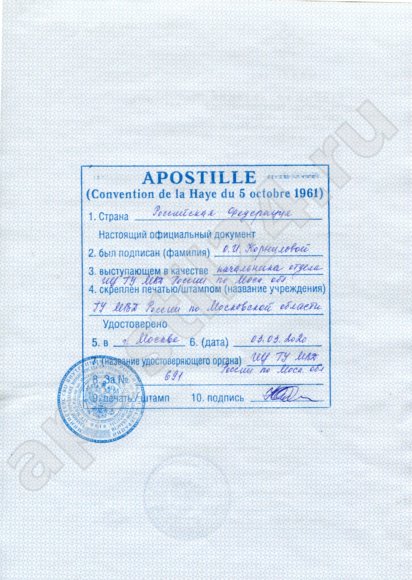 APOSTILLE
(Convention de la Haye du 5 octobre 1961)
1. Страна Российская Федерация
Настоящий официальный документ
2. был подписан (фамилия) О.И. Корниловой
3. выступающем в качестве начальника отдела
ИЦ ГУ МВД России по Моск. обл
4. скреплен печатью/штампом (название учреждения)
ГУ МВД России по Московской области
Удостоверено
5. в г. Москве 6. (дата) 03.03.2020
7. (название удостоверяющего органа) ИЦ ГУ МВД
России по Моск. обл
8. За № 691
9. печать / штамп 10. подпись